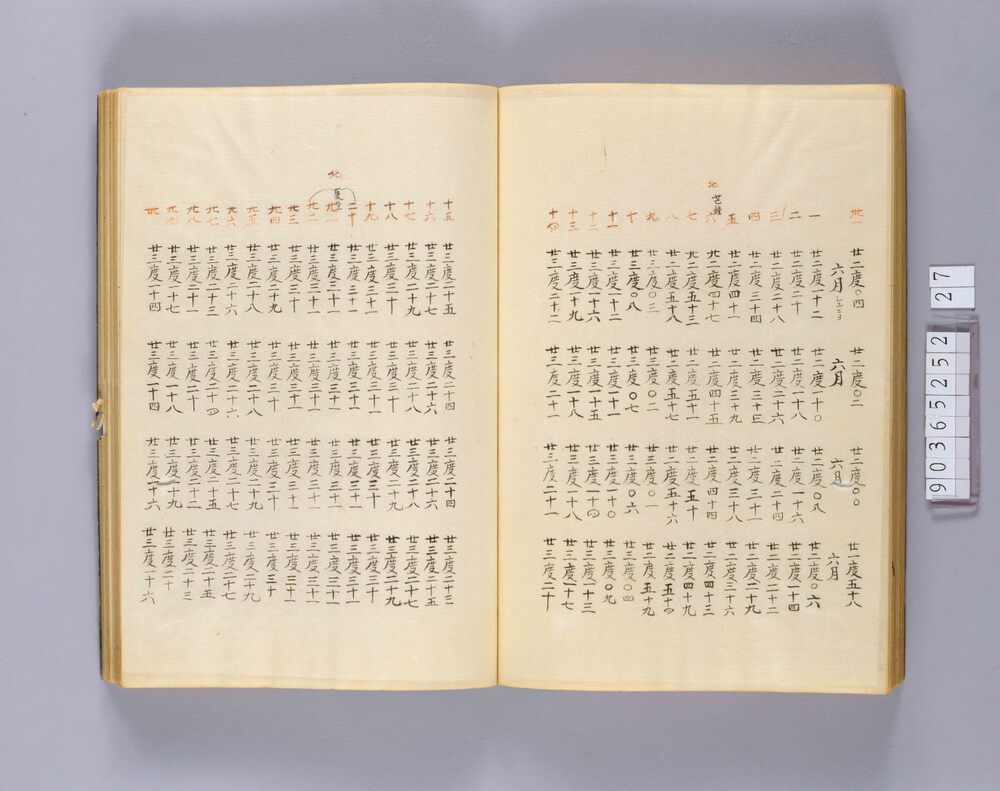 卅一 廿二度〇四 廿二度〇二 廿二度〇〇 廿一度五十八
六月 六月 六月 六月
一 廿二度十二 廿二度一十〇 廿二度〇八 廿二度〇六
二 廿二度二十 廿二度一十八 廿二度一十六 廿二度一十四
三 廿二度二十八 廿二度二十六 廿二度二十四 廿二度二十二
四 廿二度三十四 廿二度三十三 廿二度三十一 廿二度二十九
五 廿二度四十一 廿二度三十九 廿二度三十八 廿二度三十六
北 芒種
六 廿二度四十七 廿二度四十五 廿二度四十四 廿二度四十三
七 廿二度五十三 廿二度五十一 廿二度五十 廿二度四十九
八 廿二度五十八 廿二度五十七 廿二度五十六 廿二度五十四
九 廿三度〇三 廿三度〇二 廿三度〇一 廿二度五十九
十 廿三度〇八 廿三度〇七 廿三度〇六 廿三度〇四
十一 廿三度一十二 廿三度一十一 廿三度一十〇 廿三度〇九
十二 廿三度一十六 廿三度一十五 廿三度一十四 廿三度一十三
十三 廿三度一十九 廿三度一十八 廿三度一十八 廿三度一十七
十四 廿三度二十二 廿三度二十一 廿三度二十一 廿三度二十
十五 廿三度二十五 廿三度二十四 廿三度二十四 廿三度二十三
十六 廿三度二十七 廿三度二十六 廿三度二十六 廿三度二十五
十七 廿三度二十八 廿三度二十八 廿三度二十八 廿三度二十七
十八 廿三度三十 廿三度三十 廿三度二十九 廿三度二十九
十九 廿三度三十一 廿三度三十一 廿三度三十 廿三度三十
二十 廿三度三十一 廿三度三十一 廿三度三十一 廿三度三十一
北 夏至
廿一 廿三度三十一 廿三度三十一 廿三度三十一 廿三度三十一
廿二 廿三度三十一 廿三度三十一 廿三度三十一 廿三度三十一
廿三 廿三度三十 廿三度三十一 廿三度三十一 廿三度三十一
廿四 廿三度二十九 廿三度三十 廿三度三十 廿三度三十
廿五 廿三度二十八 廿三度二十八 廿三度二十九 廿三度二十九
廿六 廿三度二十六 廿三度二十六 廿三度二十七 廿三度二十七
廿七 廿三度二十三 廿三度二十四 廿三度二十五 廿三度二十五
廿八 廿三度二十一 廿三度二十 廿三度二十二 廿三度二十三
廿九 廿三度一十七 廿三度一十八 廿三度一十九 廿三度二十
卅 廿三度一十四 廿三度一十四 廿三度一十六 廿三度一十六
27
90365252